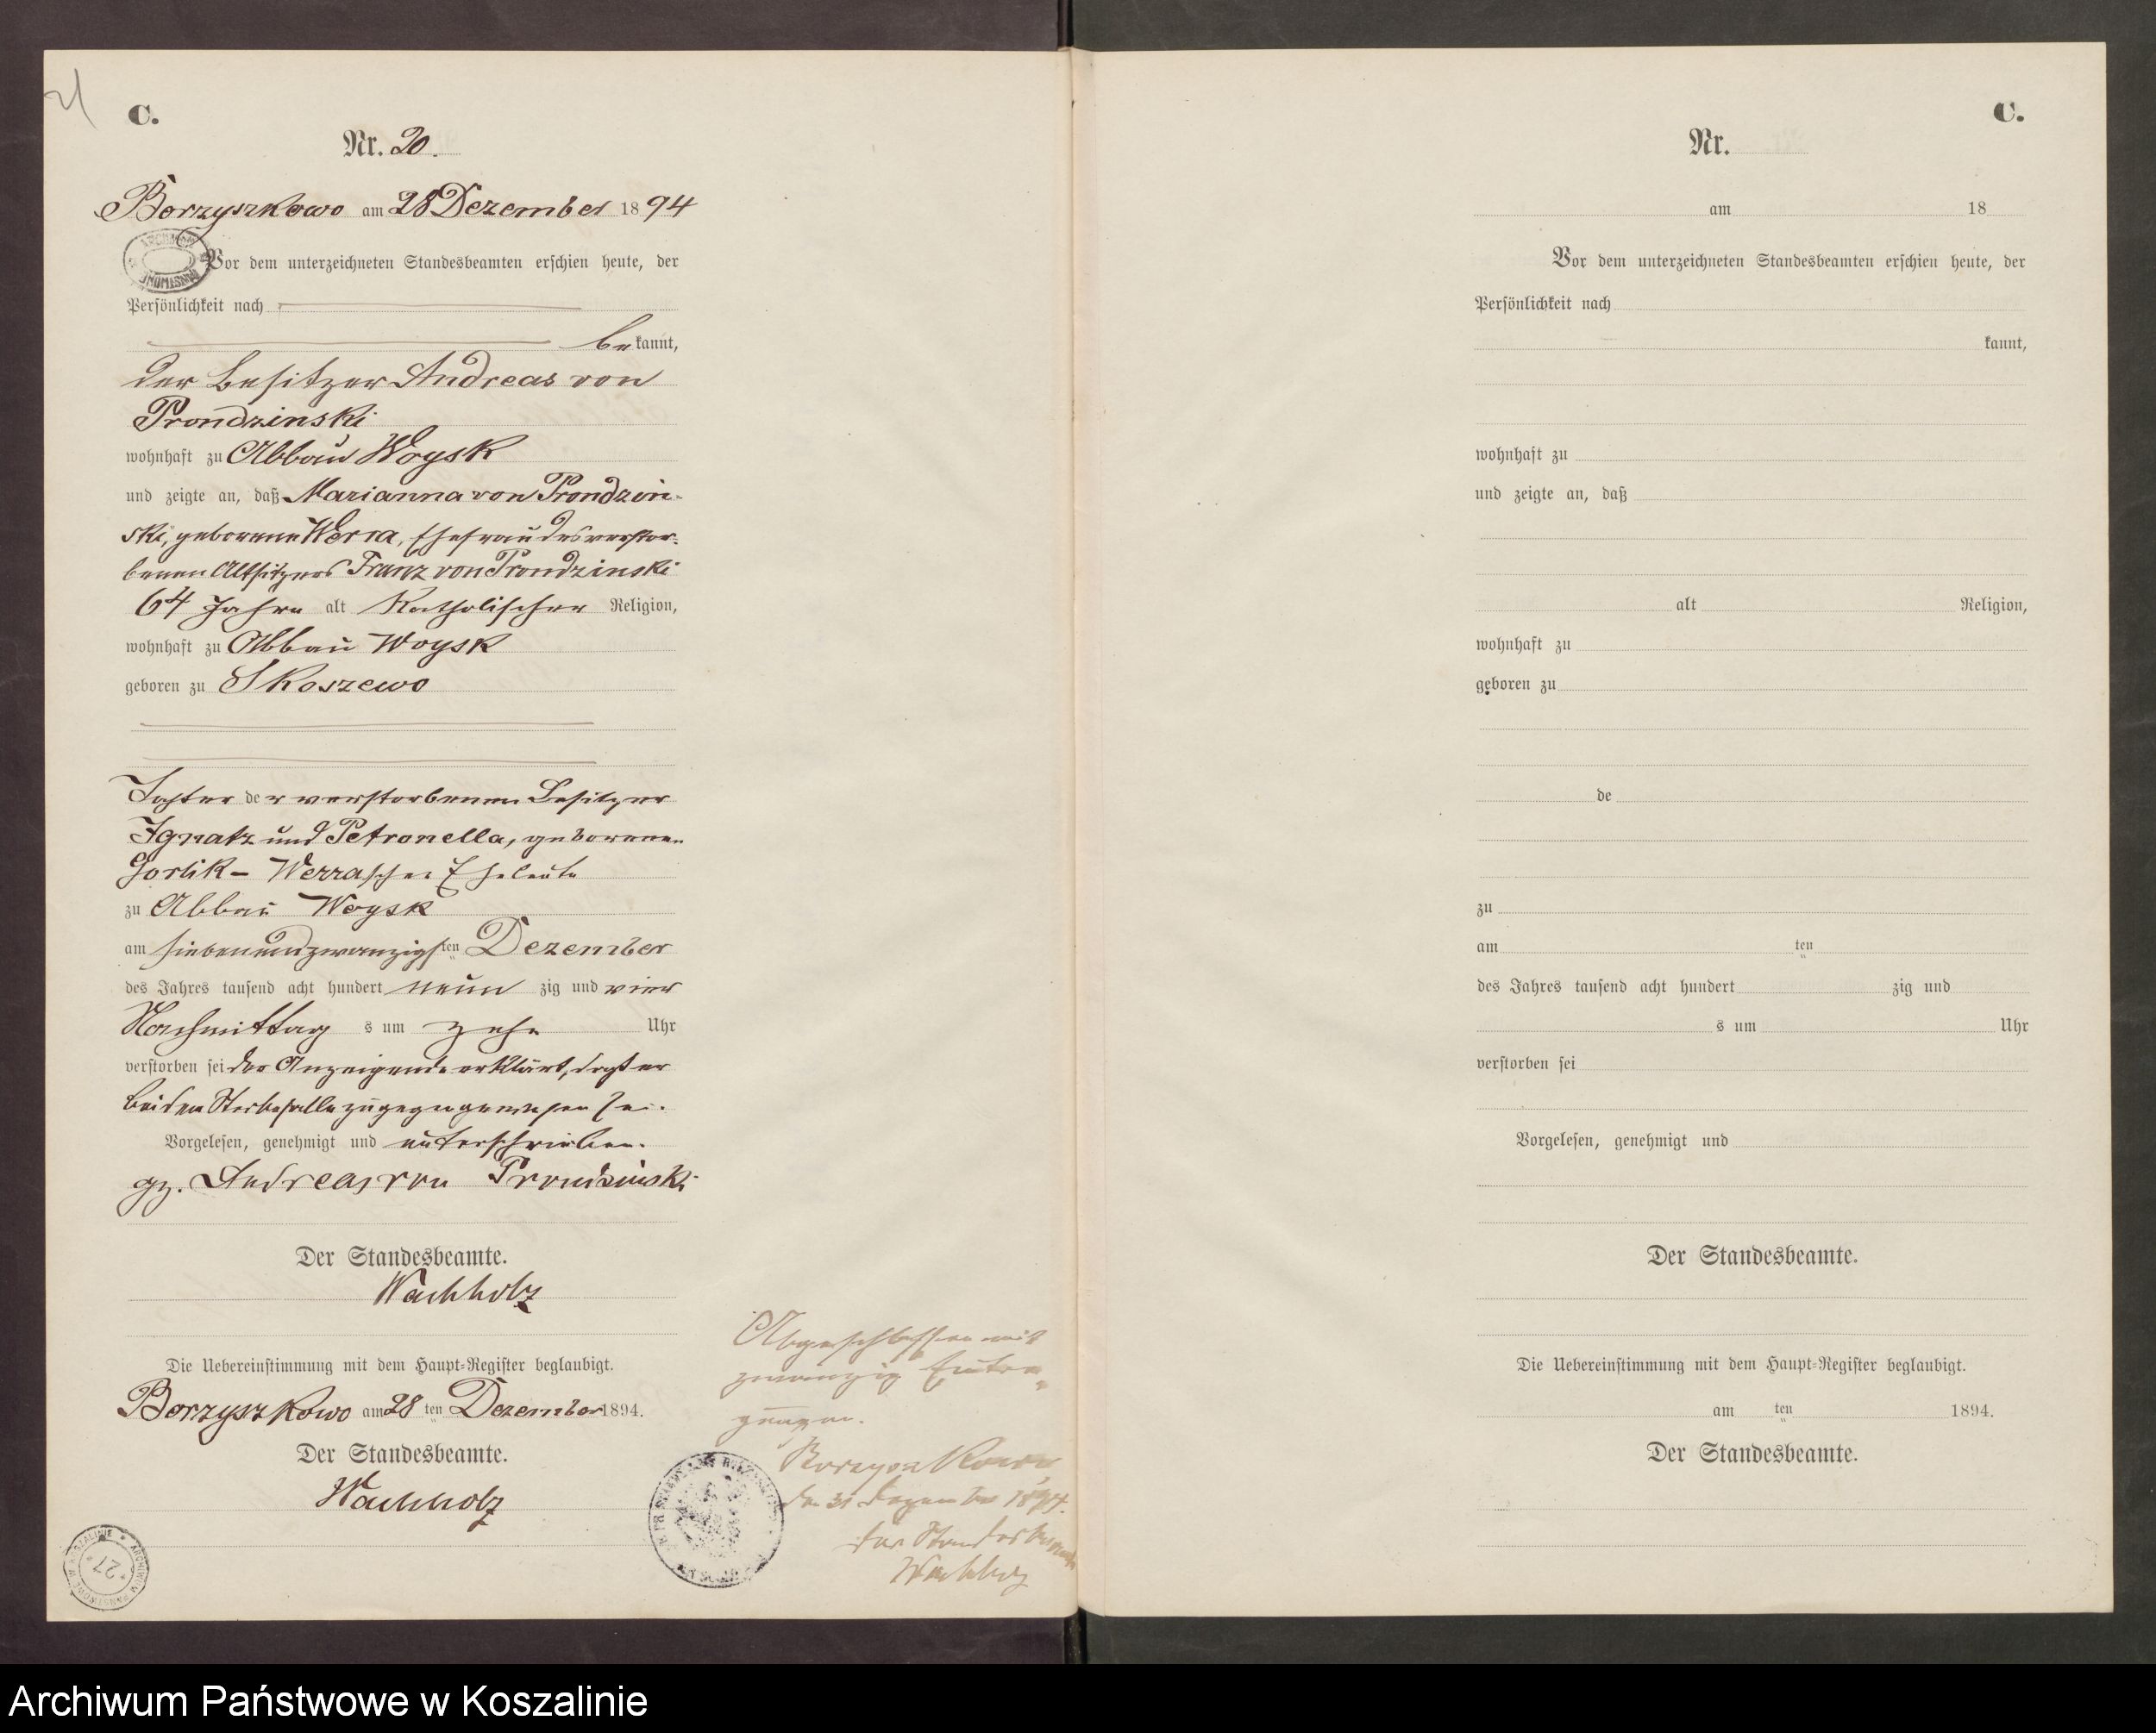 C.
Nr. 20.
Borzyszkowo am 28 Dezember 1894
Vor dem unterzeichneten Standesbeamten erschien heute, der
Persönlichkeit nach
bekannt,
der Besitzer Andreas von
Prondzinski
wohnhaft zu Abbau Woysk
und zeigte an, daß Marianna von Prondzin-
ski, geborene Werra, Ehefrau des verstor-
benen Altsitzers Franz von Prondzinski
64 Jahre alt Katholischer Religion,
wohnhaft zu Abbau Woysk
geboren zu Skoszewo
Tochter der verstorbenen Besitzer
Ignatz und Petronella, geborenen
Gorlik- Werraschen Eheleute
zu Abbau Woysk
am siebenundzwanzigsten Dezember
des Jahres tausend acht hundert neun zig und vier
Nachmittag s um zehn Uhr
verstorben sei der Anzeigende erklärt, daß er
bei dem Sterbefalle zugegen gewesen sei.
Vorgelesen, genehmigt und unterschrieben.
gz. Andreas von Prondzinski
Der Standesbeamte.
Wachholz
Die Uebereinstimmung mit dem Haupt-Register beglaubigt.
Borzyszkowo am 28 ten Dezember 1894.
Der Standesbeamte.
Wachholz
Abgeschlossen mit
zwanzig Eintra-
gungen.
Borzyszkowo,
den 31 Dezember 1894.
Der Standesbeamte
Wachholz
27
C.
Nr.
am 18
Vor dem unterzeichneten Standesbeamten erschien heute, der
Persönlichkeit nach
kannt,
wohnhaft zu
und zeigte an, daß
alt Religion,
wohnhaft zu
geboren zu
de
zu
am ten
des Jahres tausend acht hundert zig und
s um Uhr
verstorben sei
Vorgelesen, genehmigt und
Der Standesbeamte.
Die Uebereinstimmung mit dem Haupt-Register beglaubigt.
am ten 1894.
Der Standesbeamte.
Archiwum Państwowe w Koszalinie